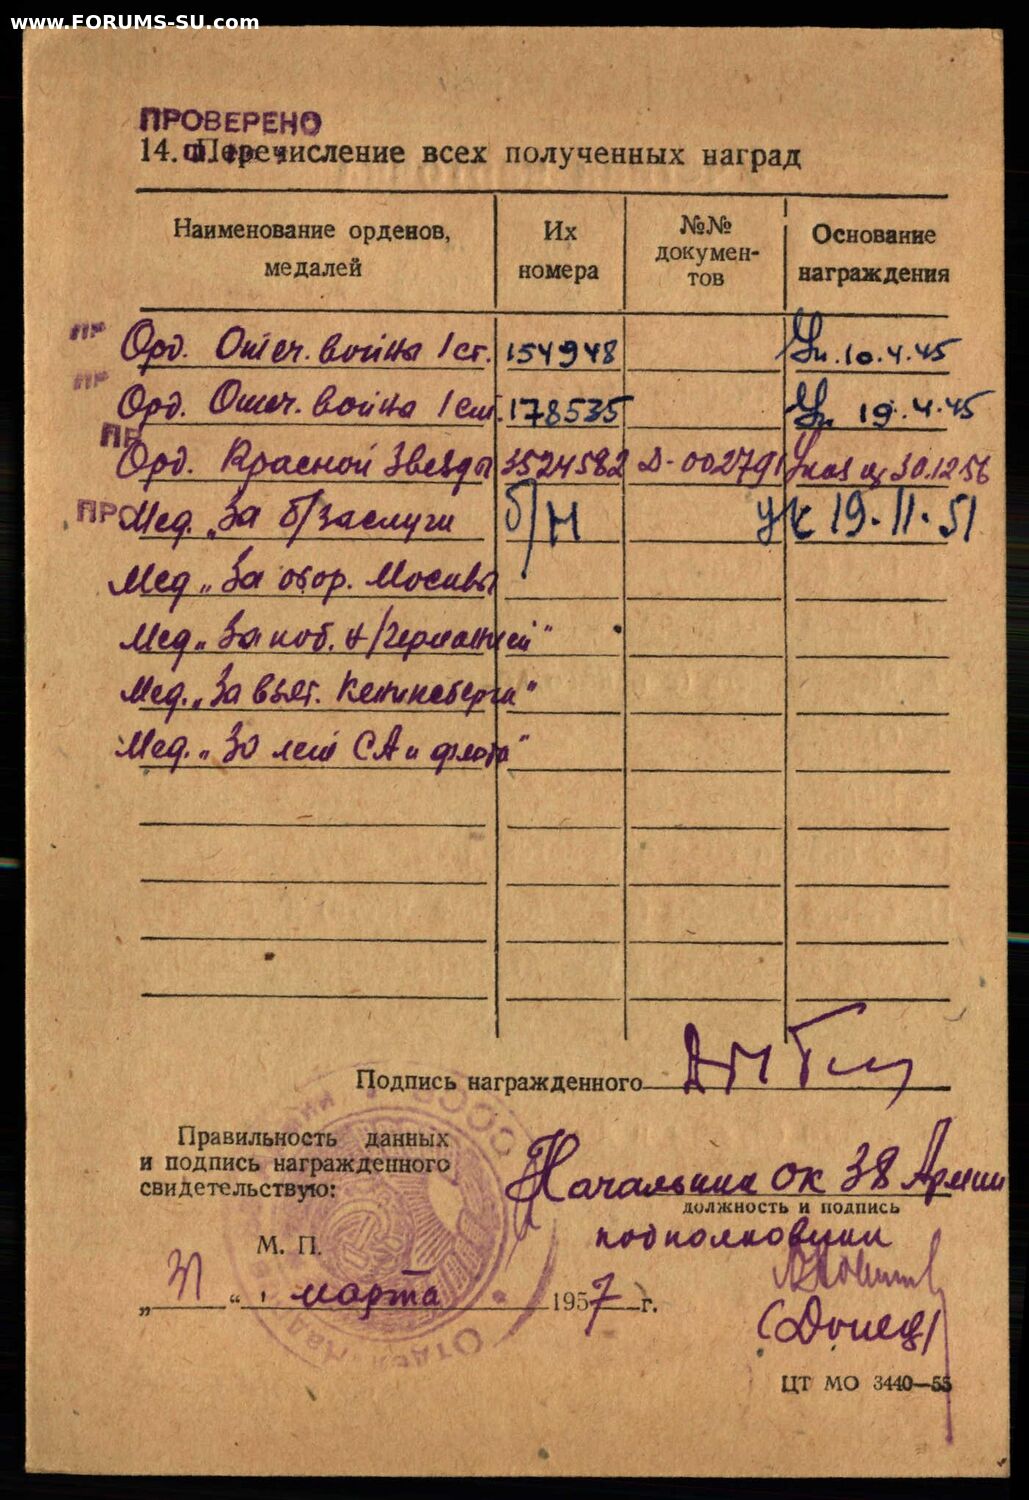 www.FORUMS-SU.com
ПРОВЕРЕНО
14. Перечисление всех полученных наград
Наименование орденов, медалей
Их номера
№№ докумен-тов
Основание награждения
ПР Орд. Отеч. война 1 ст. 154948 Ук. 10.4.45
ПР Орд. Отеч. война 1 ст. 178535 Ук 19.4.45
ПР Орд. Красной Звезды 3524582 Д-002791 Указ 30.12.56
ПРО Мед. „За б/заслуги б/н ук 19.11.51
Мед „За обор. Москвы
Мед „За поб. н/Германией"
Мед. „За взят. Кенигсберга"
Мед. „30 лет СА и флота"
Подпись награжденного
Правильность данных
и подпись награжденного
свидетельствую:
Начальник ОК 38 Армии
должность и подпись
подполковник
М. П.
„31" марта 1957 г.
(Донец)
ЦТ МО 3440—55